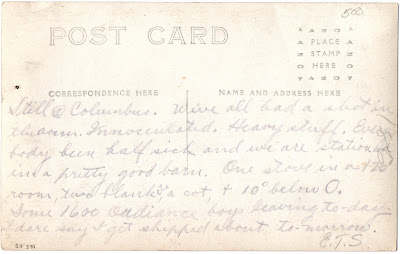 500
POST CARD
AZO
PLACE
STAMP
HERE
AZO
CORRESPONDENCE HERE
NAME AND ADDRESS HERE
Still @ Columbus. We've all had a shot in
the arm. Innoculated. Heavy stuff. Every
body been half sick and we are stationed
in a pretty good barn. One stove in a
room, two blankets, a cot, + 10° below 0.
Some 1600 Ordiance boys leaving to-day
dare say I get shipped about to-morrow.
E.J.S.